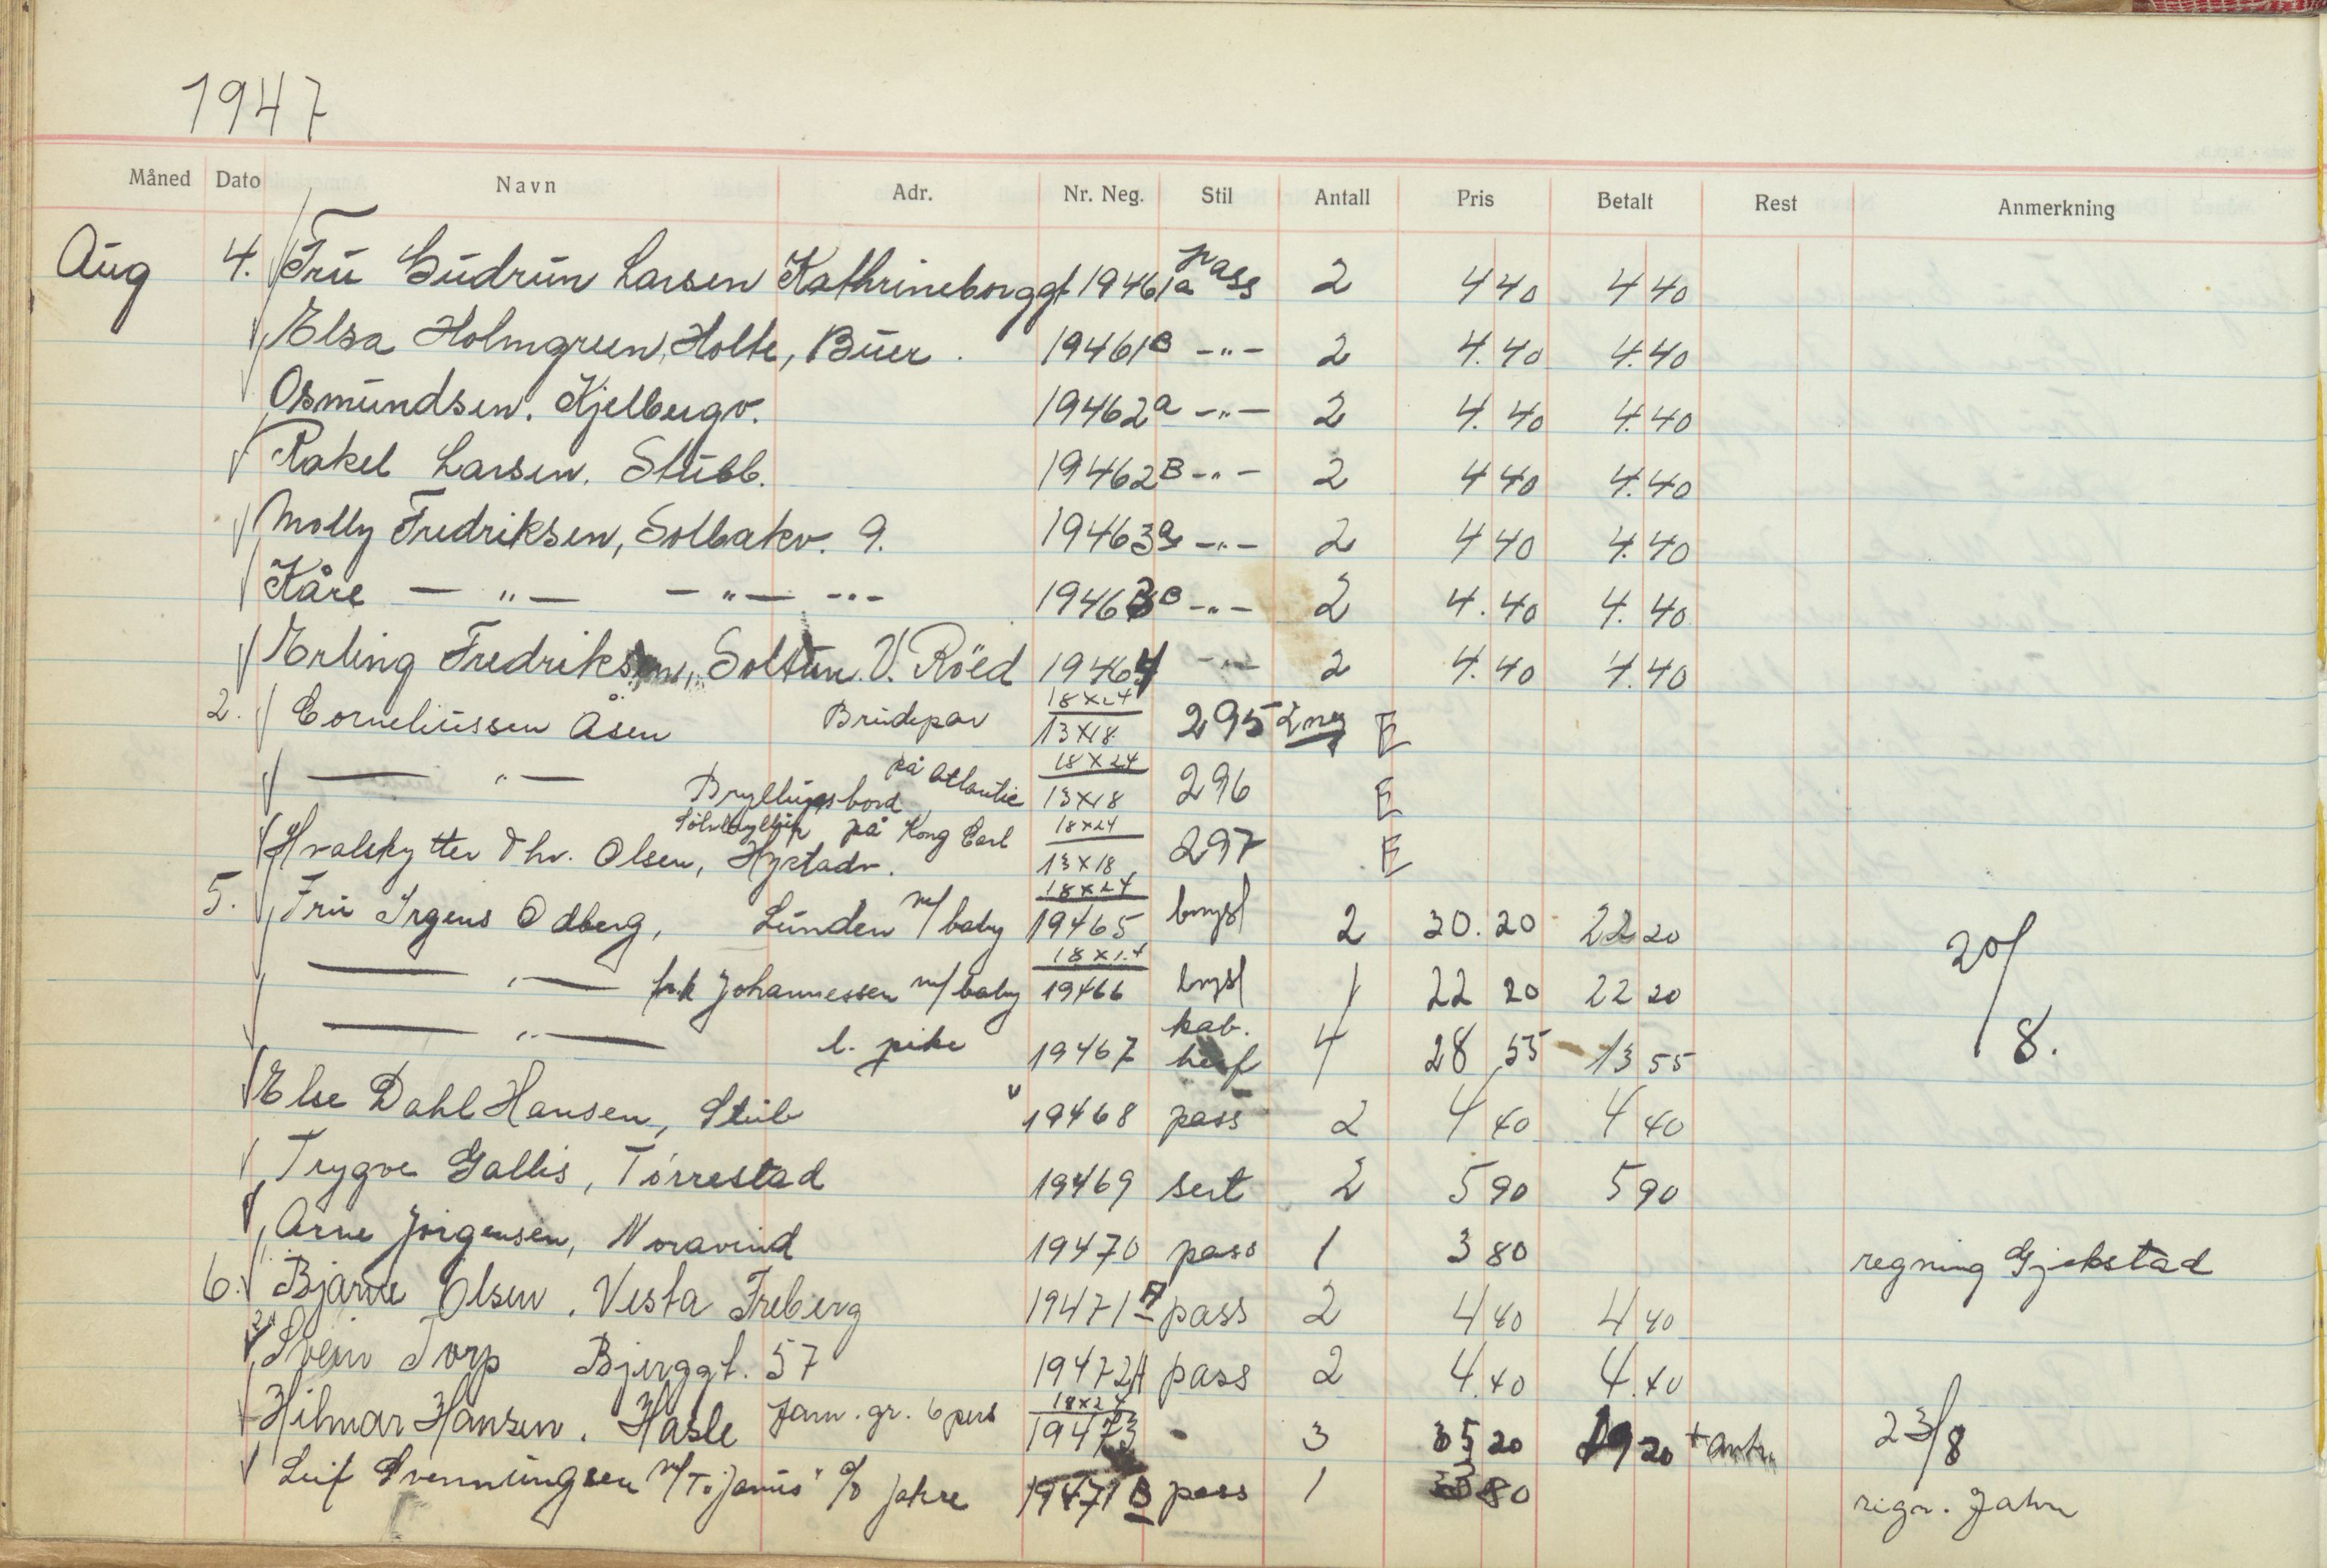 1947
Måned Dato Navn Adr. Nr. Neg. Stil Antall Pris Betalt Rest Anmerkning
Aug 4. Fru Gudrun Larsen Kathrineborggt 19461a pass 2 4 40 4 40
Elsa Holmgreen, Holte, Buer. 19461B -"- 2 4.40 4.40
Osmundsen. Kjelbergv. 19462a -"- 2 4.40 4.40
Rakel Larsen. Stubb. 19462B -"- 2 4 40 4.40
Molly Fredriksen, Solbakv. 9. 19463a -"- 2 4 40 4.40
Kåre — " — — " — -"- 19463B -"- 2 4.40 4.40
Erling Fredriksen, Soltun. V. Röed 19464 -"- 2 4.40 4.40
2. Corneliussen Åsen Brudepar 18x24 13x18 295 2 neg E
— " — Bryllupsbord på Atlantic 18x24 13x18 296 E
Hvalskytter Thv. Olsen, Sölvbryllup på Kong Carl 18x24 13x18 297 E
5. Fru Irgens Odberg, Lunden m/ baby 18x24 19465 2 30.20 22 20
— " — frk Johannessen m/ baby 18x24 19466 1 22 20 22 20 20/8.
— " — l. pike 19467 kab. 4 28 55 13 55
Else Dahl Hansen, Stub " 19468 pass 2 4 40 4 40
Trygve Gallis, Torrestad 19469 sert 2 5 90 5 90
Arne Jörgensen, Noravind 19470 pass 1 3 80 regning Gjekstad
6. Bjarne Olsen. Vesta Freberg 19471A pass 2 4 40 4 40
Svein Torp Bjerggt. 57 19472A pass 2 4.40 4.40
Hilmar Hansen. Hasle fam. gr. 6 pers 18x24 19473 - 3 35 20 19 20 23/8
Leif Svenningsen m/T. Janus c/o Jahre 19471B pass 1 3 80 regn. Jahre